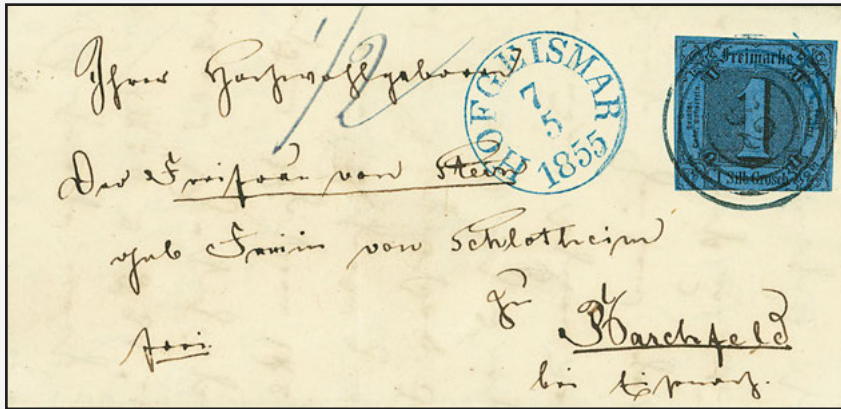 Ihrer Hochwohlgeboren
1/2
HOFGEISMAR
7
5
1855
Freimarke
1
1 Silb. Grosch.
Der Freifrau von Stein
geb Freiin von Schlotheim
zu
frei
Barchfeld
bei Eisenach.